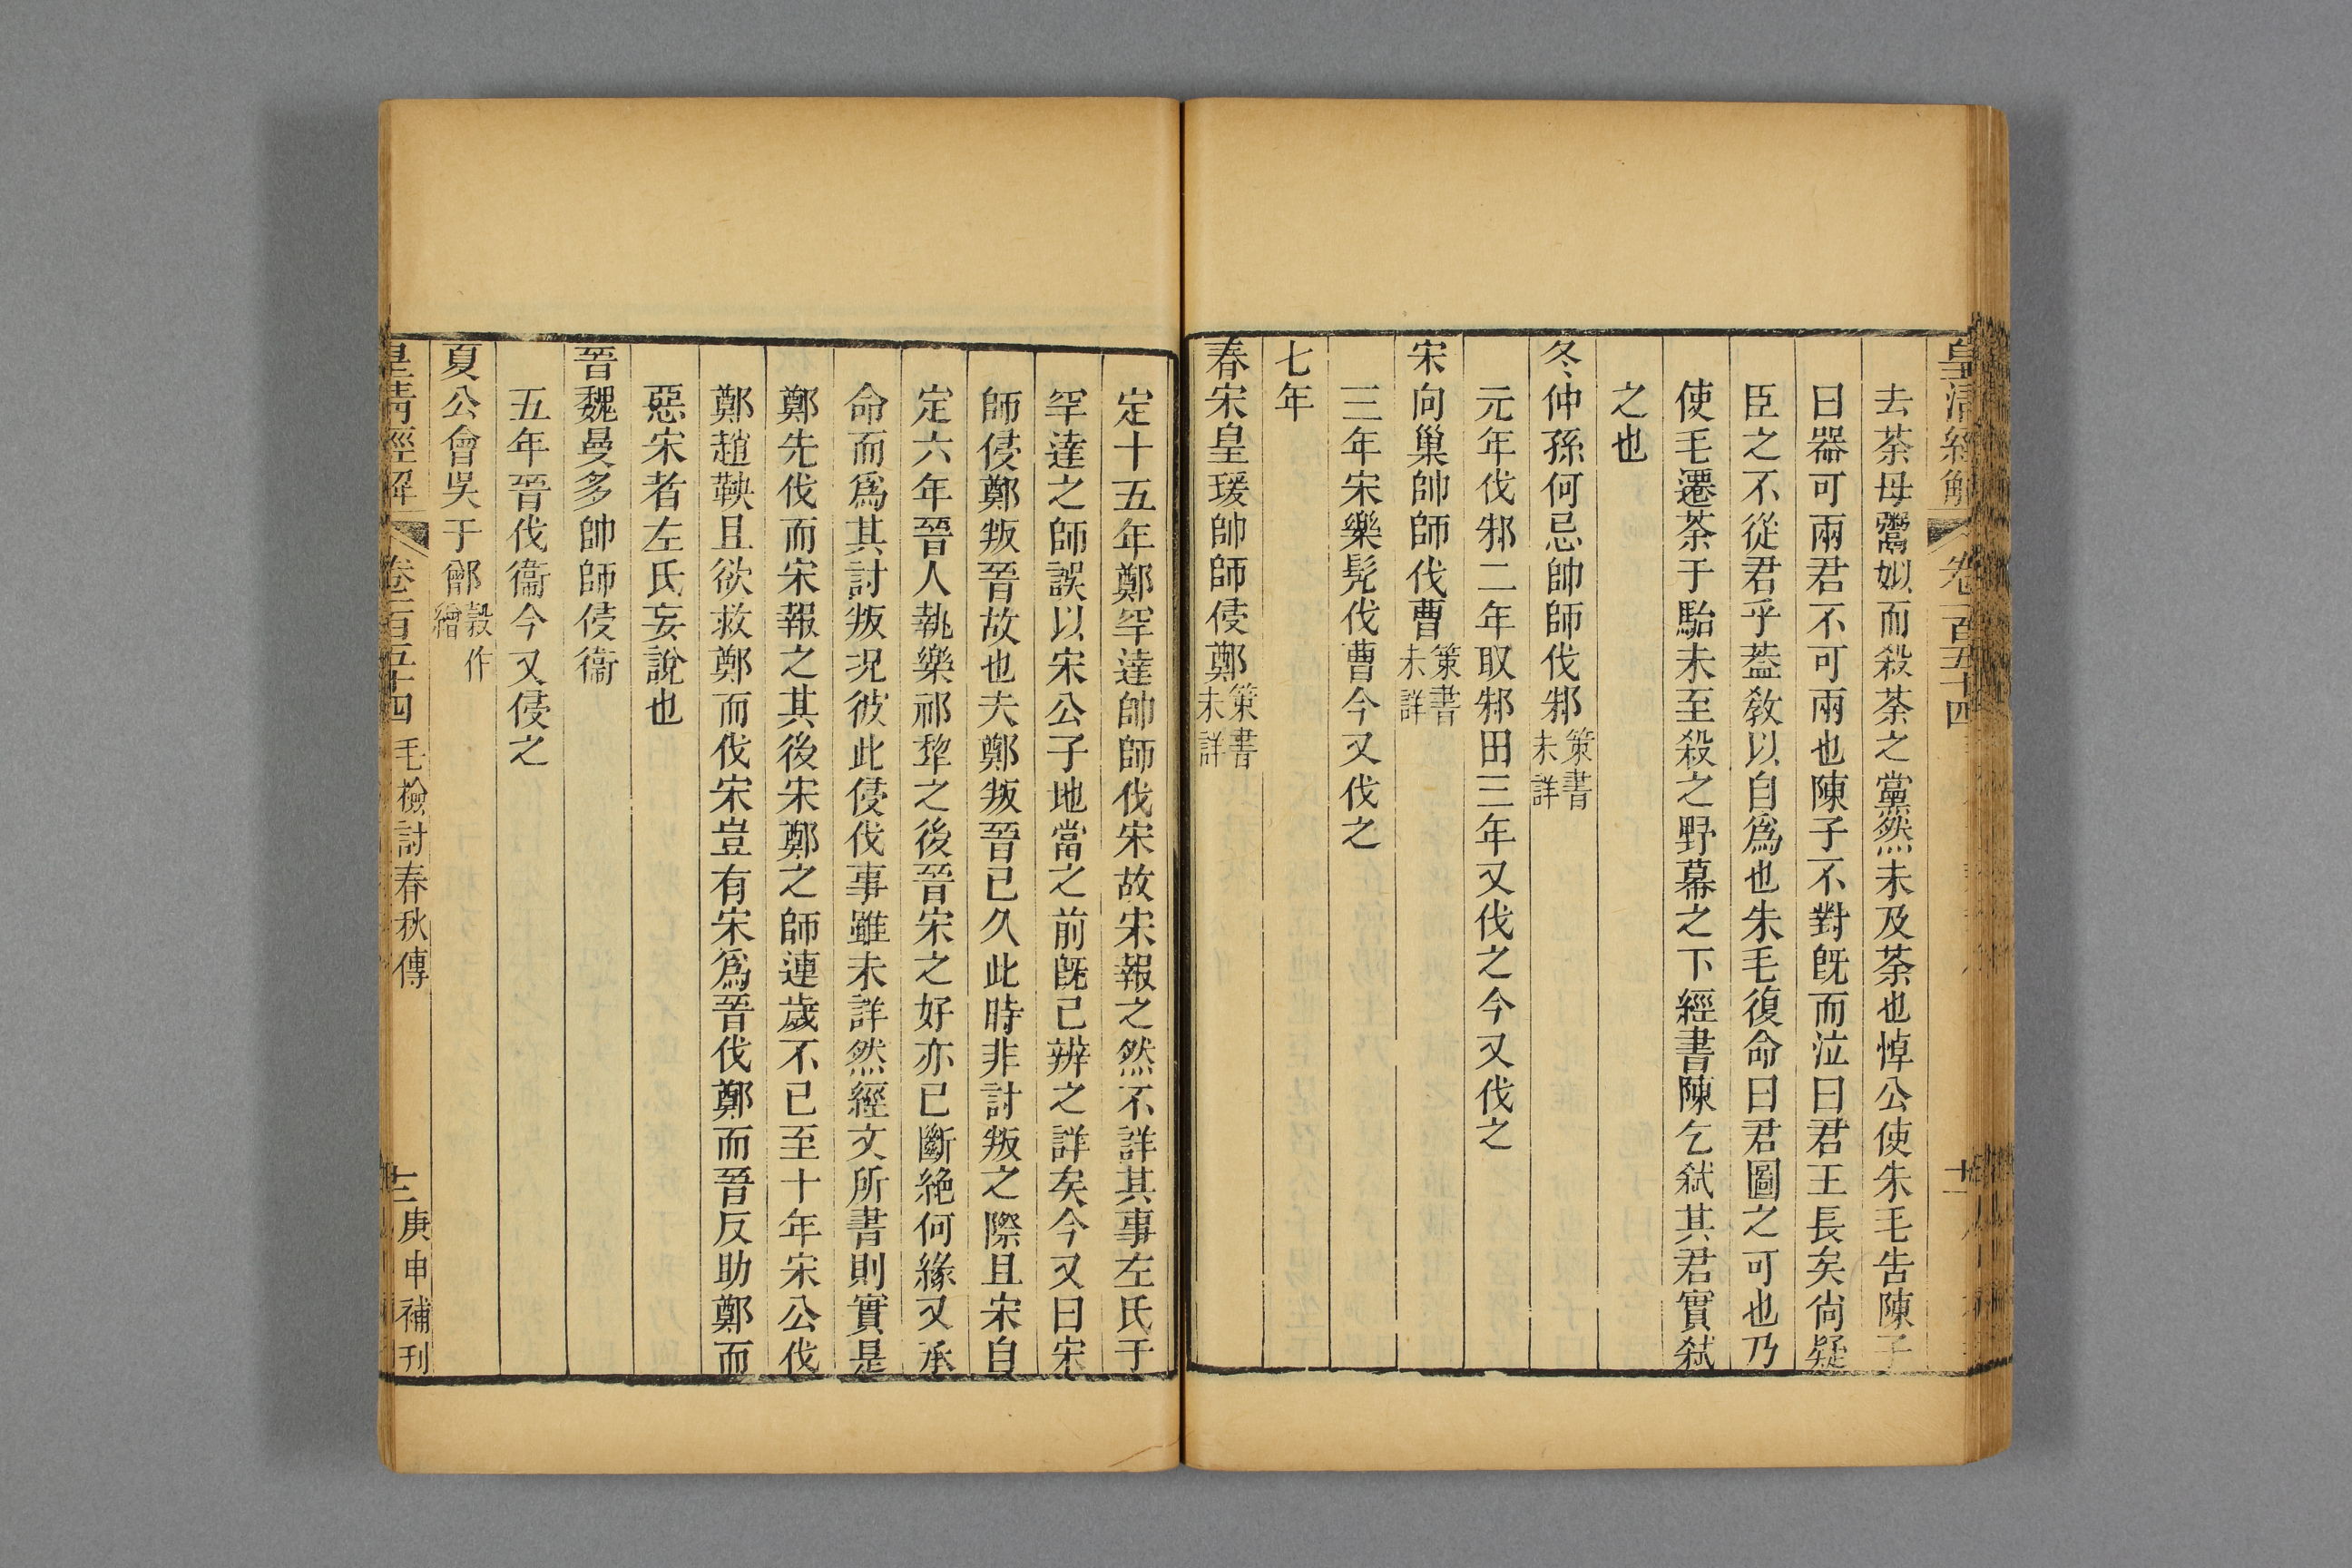 皇清經解 卷一百五十四 十二
去荼母鬻姒而殺荼之黨然未及荼也悼公使朱毛告陳子
曰器可兩君不可兩也陳子不對旣而泣曰君王長矣尙疑
臣之不從君乎葢敎以自爲也朱毛復命曰君圖之可也乃
使毛遷荼于駘未至殺之野幕之下經書陳乞弑其君實弑
之也
冬仲孫何忌帥師伐邾策書未詳
元年伐邾二年取邾田三年又伐之今又伐之
宋向巢帥師伐曹策書未詳
三年宋樂髡伐曹今又伐之
七年
春宋皇瑗帥師侵鄭策書未詳
定十五年鄭罕達帥師伐宋故宋報之然不詳其事左氏于
罕達之師誤以宋公子地當之前旣已辨之詳矣今又曰宋
師侵鄭叛晉故也夫鄭叛晉已久此時非討叛之際且宋自
定六年晉人執樂祁犂之後晉宋之好亦已斷絶何緣又承
命而爲其討叛况彼此侵伐事雖未詳然經文所書則實是
鄭先伐而宋報之其後宋鄭之師連歲不已至十年宋公伐
鄭趙鞅且欲救鄭而伐宋豈有宋爲晉伐鄭而晉反助鄭而
惡宋者左氏妄說也
晉魏曼多帥師侵衞
五年晉伐衞今又侵之
夏公會吳于鄫穀作繒
皇淸經解 卷一百五十四 毛檢討春秋傳 十三 庚申補刊